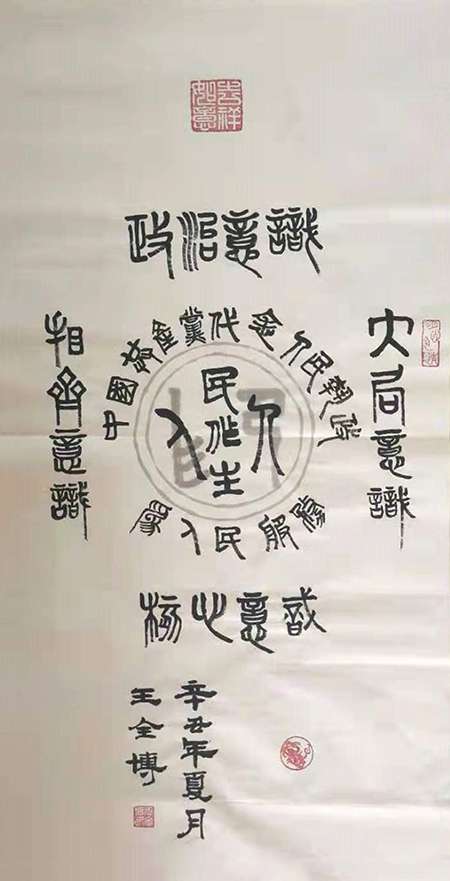 吉祥如意
政治意識
大局意識
看齊意識
中國共產黨代表人民執政
人民作主人
為人民服務
核心意識
辛丑年夏月
王全博